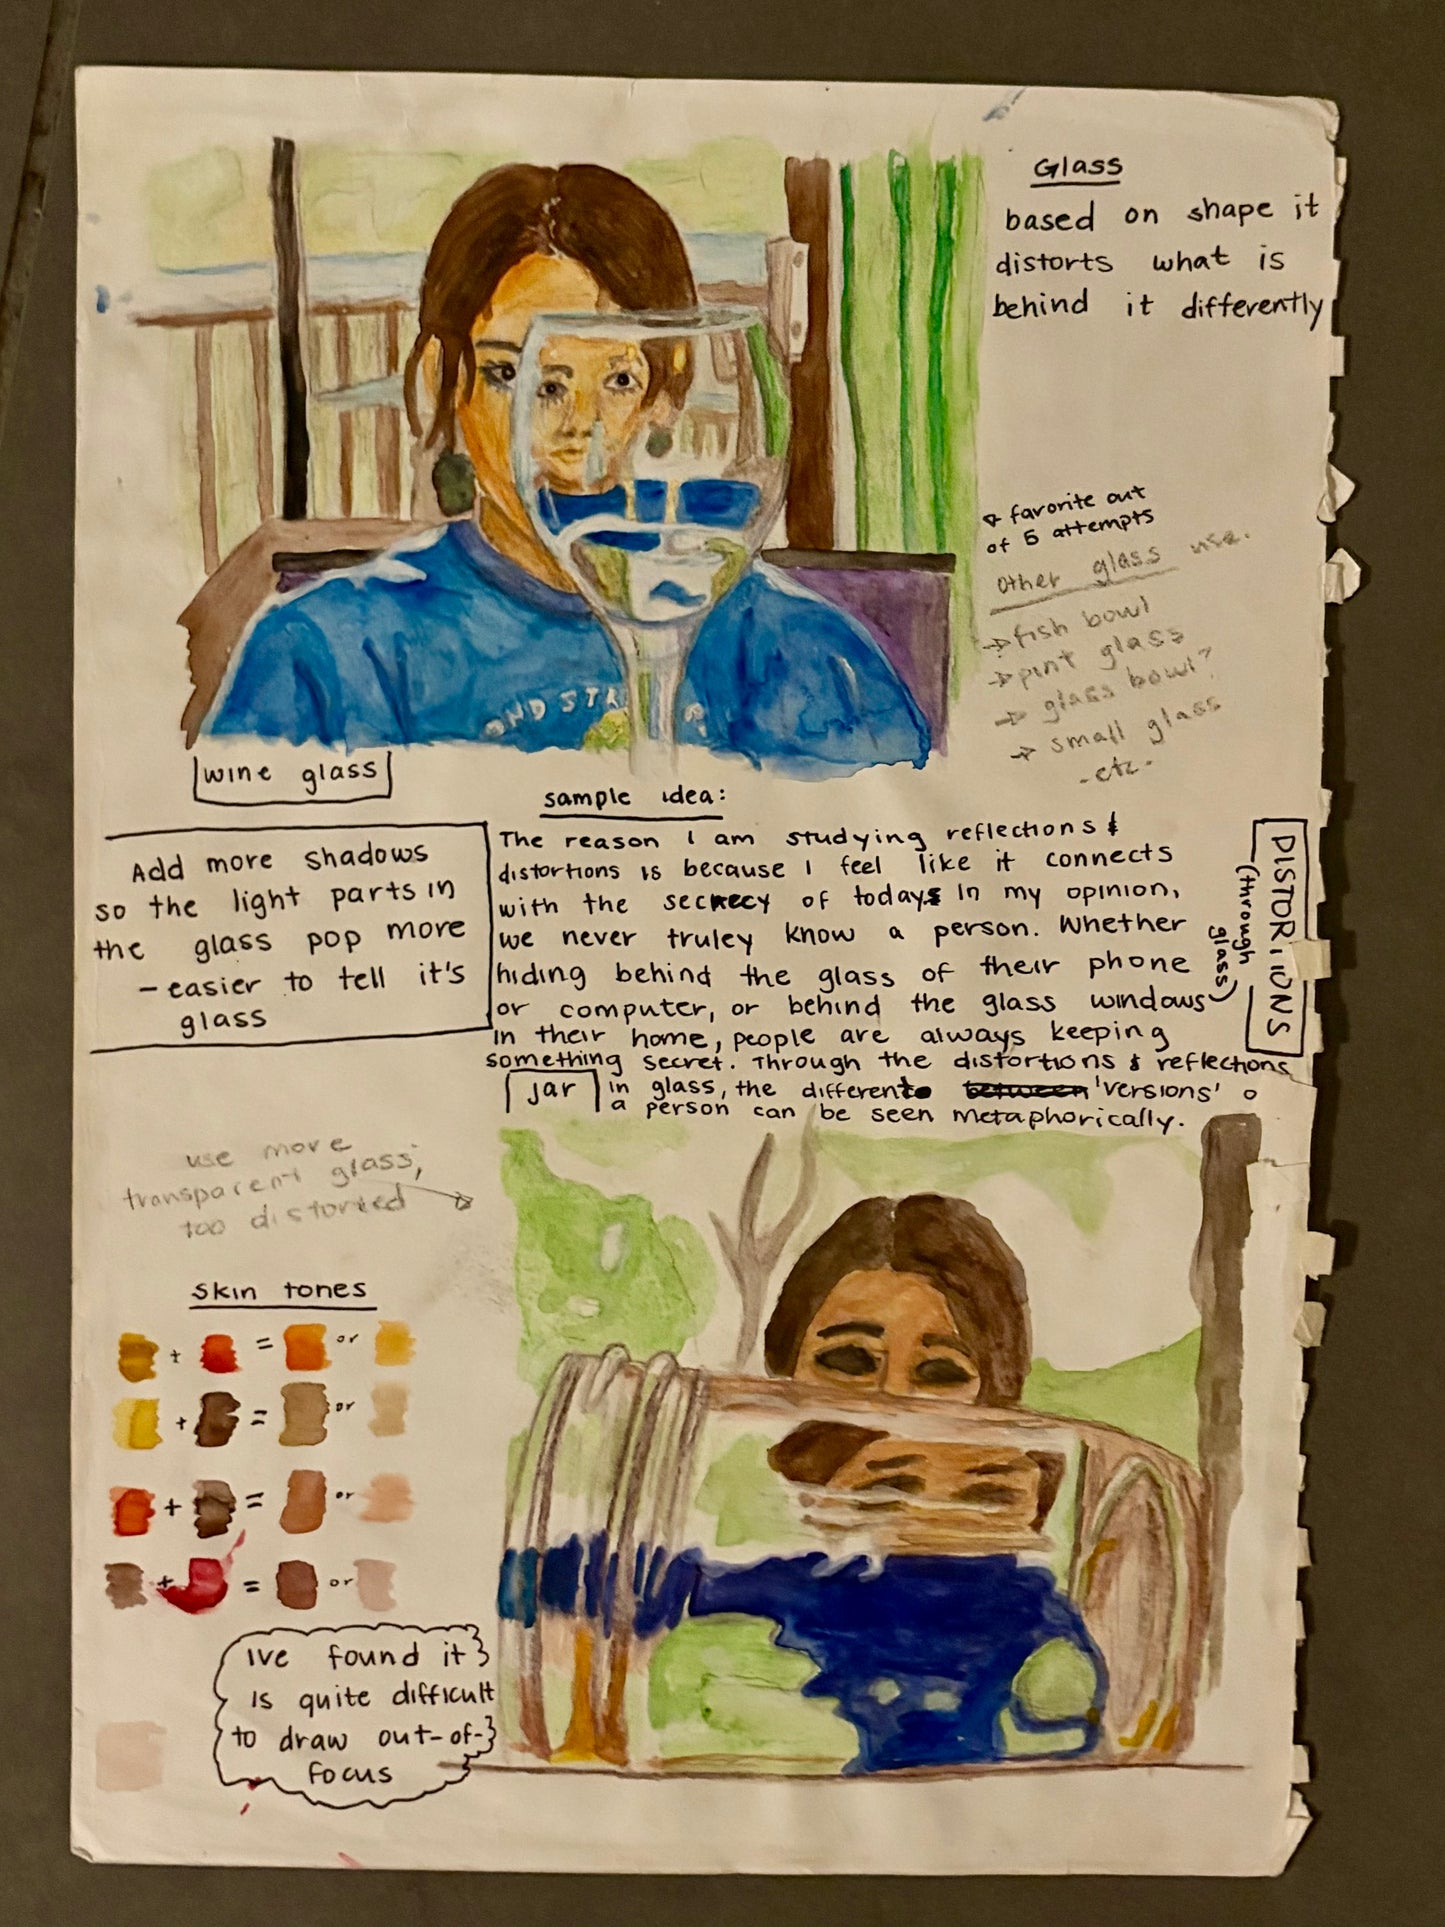 Glass
based on shape it
distorts what is
behind it differently
favorite out
of 5 attempts
other glass use.
→ fish bowl
→ pint glass
→ glass bowl?
→ small glass
- etc -
OND STR
wine glass
sample idea:
Add more shadows
so the light parts in
the glass pop more
- easier to tell it's
glass
The reason I am studying reflections &
distortions is because I feel like it connects
with the secrecy of today. In my opinion,
we never truley know a person. Whether
hiding behind the glass of their phone
or computer, or behind the glass windows
in their home, people are always keeping
something secret. Through the distortions & reflections
in glass, the different between 'versions' o
a person can be seen metaphorically.
DISTORTIONS
(through
glass)
jar
use more
transparent glass,
too distorted
skin tones
+ = or
+ = or
+ = or
+ = or
Ive found it
is quite difficult
to draw out-of-
focus